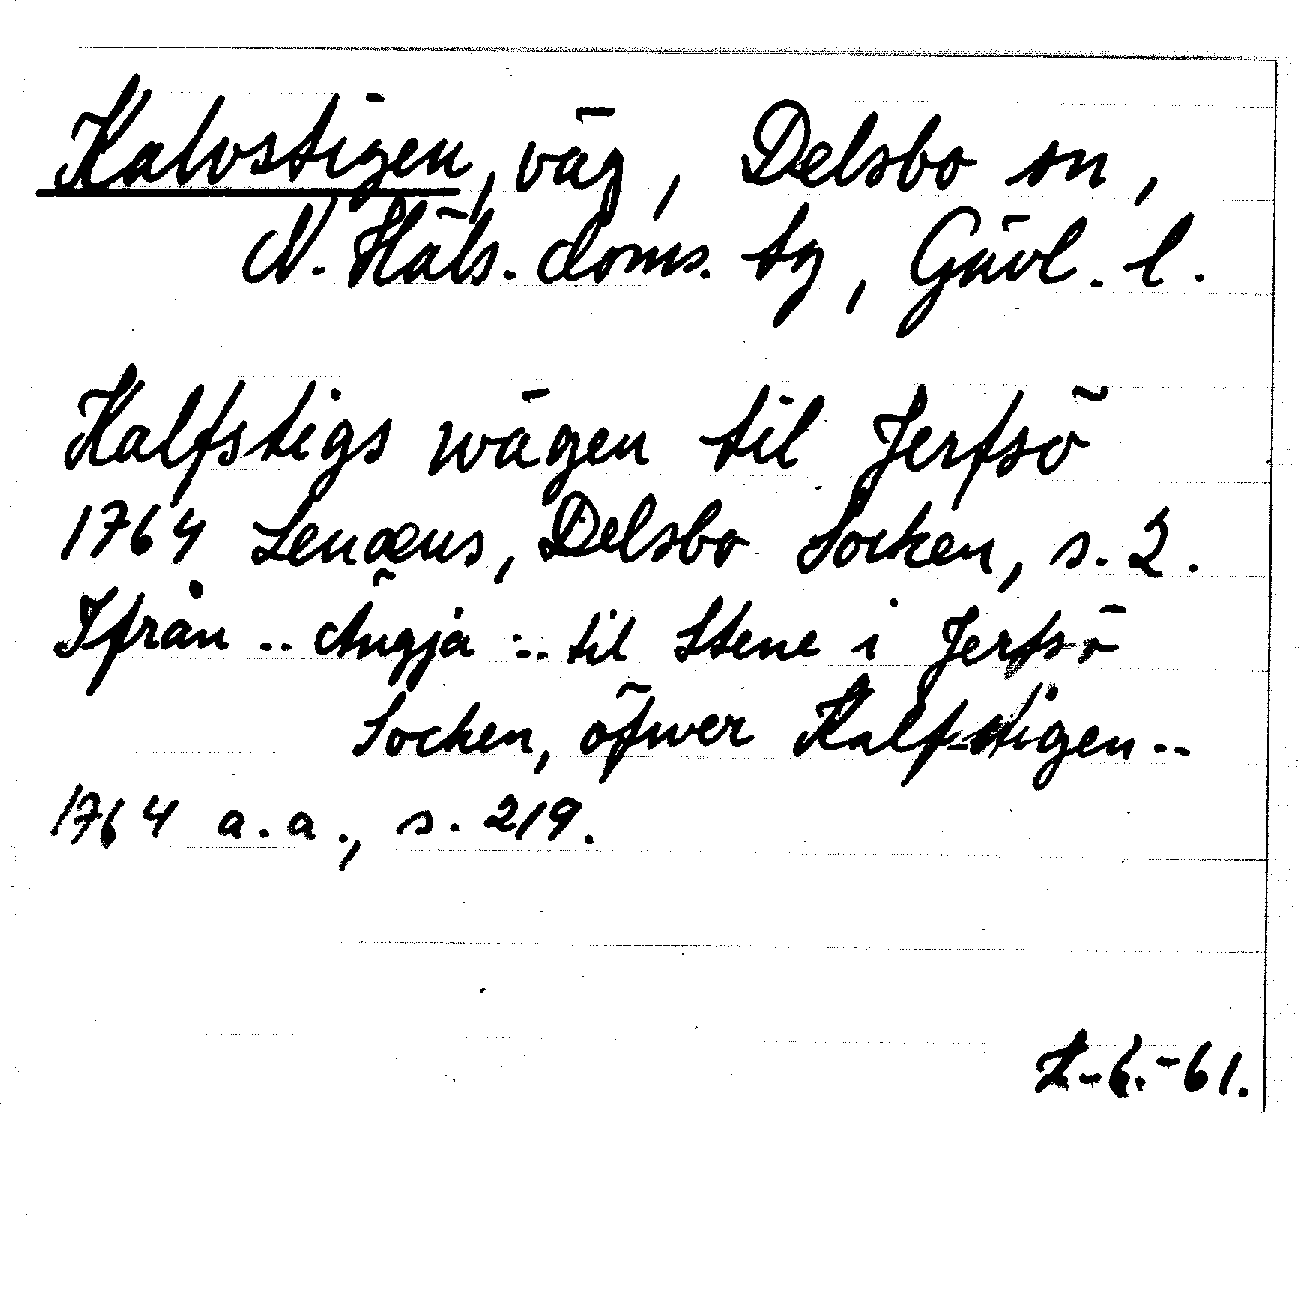 Kalvstigen, väg, Delsbo sn,
N. Häls. doms. tg, Gävl. l.
Kalfstigs wägen til Jerfsö
1764 Lenæus, Delsbo Socken, s. 2.
Ifrån .. Ängja .. til Stene i Jerfsö
Socken, öfwer Kalfstigen ..
1764 a.a., s. 219.
-61.